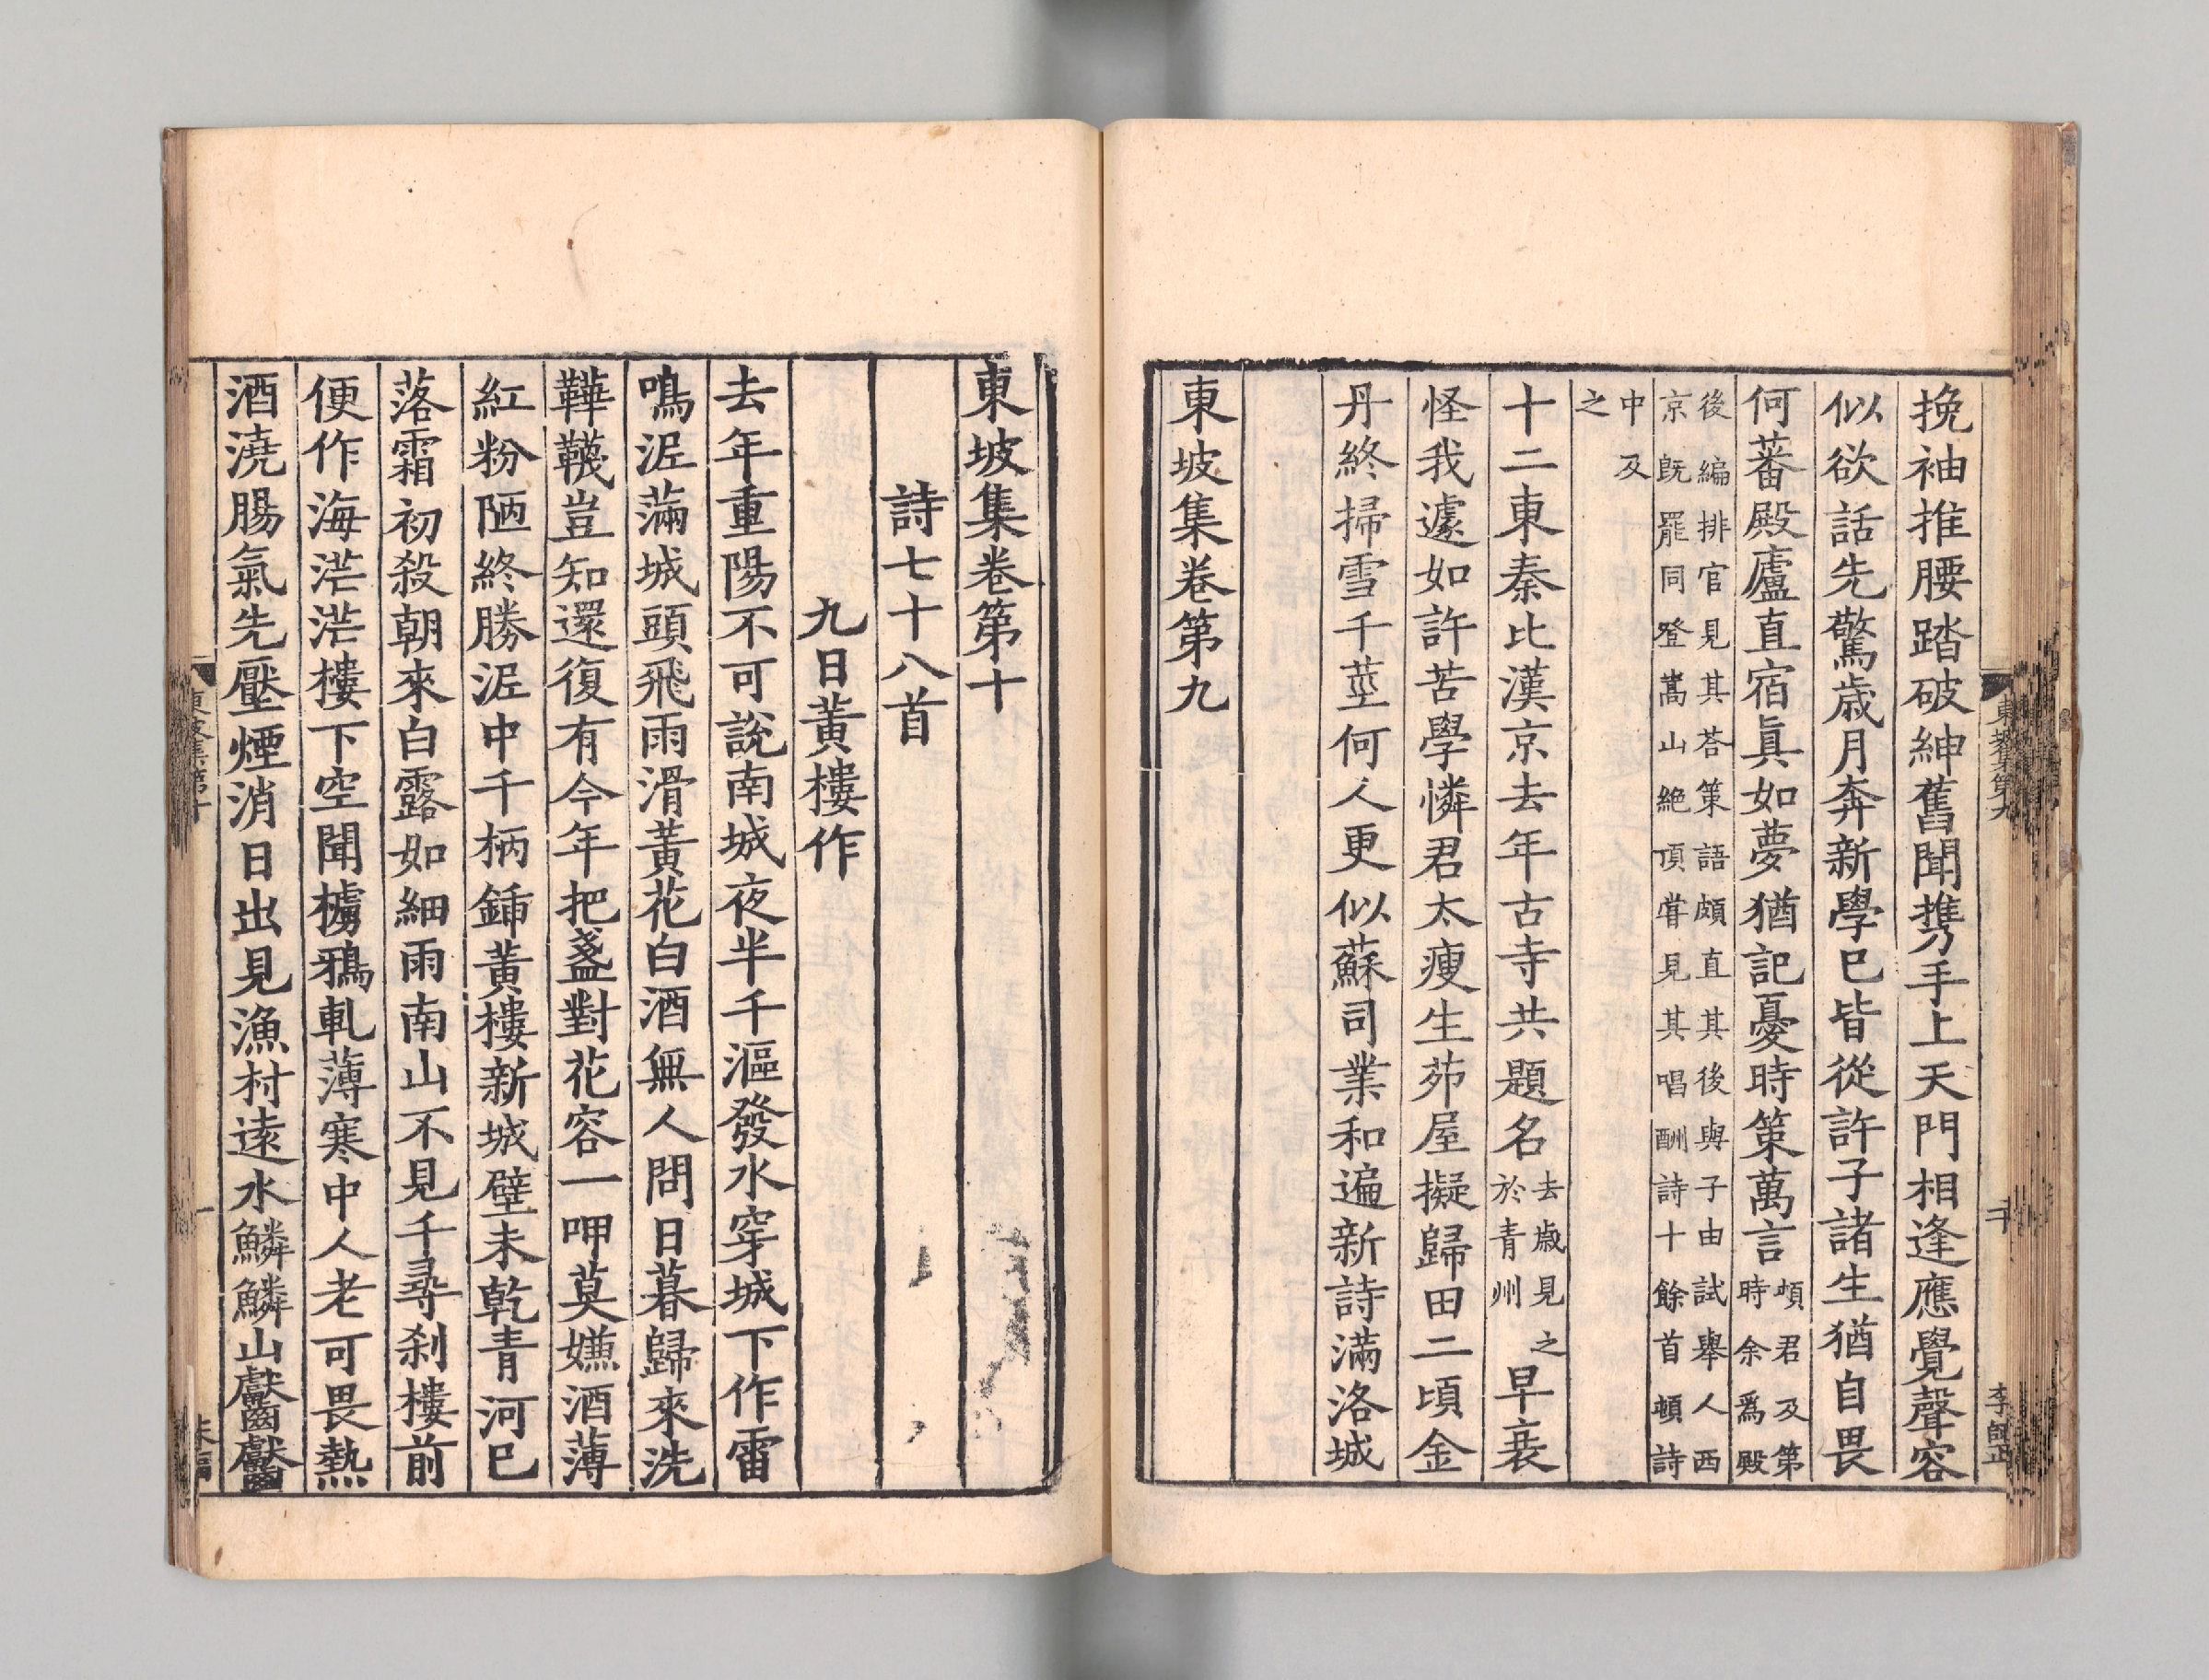 挽袖推腰踏破紳舊聞攜手上天門相逢應覺聲容
似欲話先驚歲月奔新學已皆從許子諸生猶自畏
何蕃殿廬直宿眞如夢猶記憂時策萬言頃君及第時余爲殿
後編排官見其荅策語頗直其後與子由試舉人西
京旣罷同登嵩山絶頂甞見其唱酬詩十餘首頓詩
中及之
十二東秦比漢京去年古寺共題名去歲見之於青州早衰
怪我遽如許苦學憐君太瘦生茆屋擬歸田二頃金
丹終掃雪千莖何人更似蘇司業和遍新詩滿洛城
東坡集卷第九
東坡集第九
二十
李師正
東坡集卷第十
詩七十八首
九日黃樓作
去年重陽不可說南城夜半千漚發水穿城下作雷
鳴泥滿城頭飛雨滑黃花白酒無人問日暮歸來洗
鞾韈豈知還復有今年把盞對花容一呷莫嫌酒薄
紅粉陋終勝泥中千柄鍤黃樓新城壁未乾青河已
落霜初殺朝來白露如細雨南山不見千尋刹樓前
便作海茫茫樓下空聞櫓鴉軋薄寒中人老可畏熱
酒澆腸氣先壓煙消日出見漁村遠水鱗鱗山齾齾
東坡集第十
一